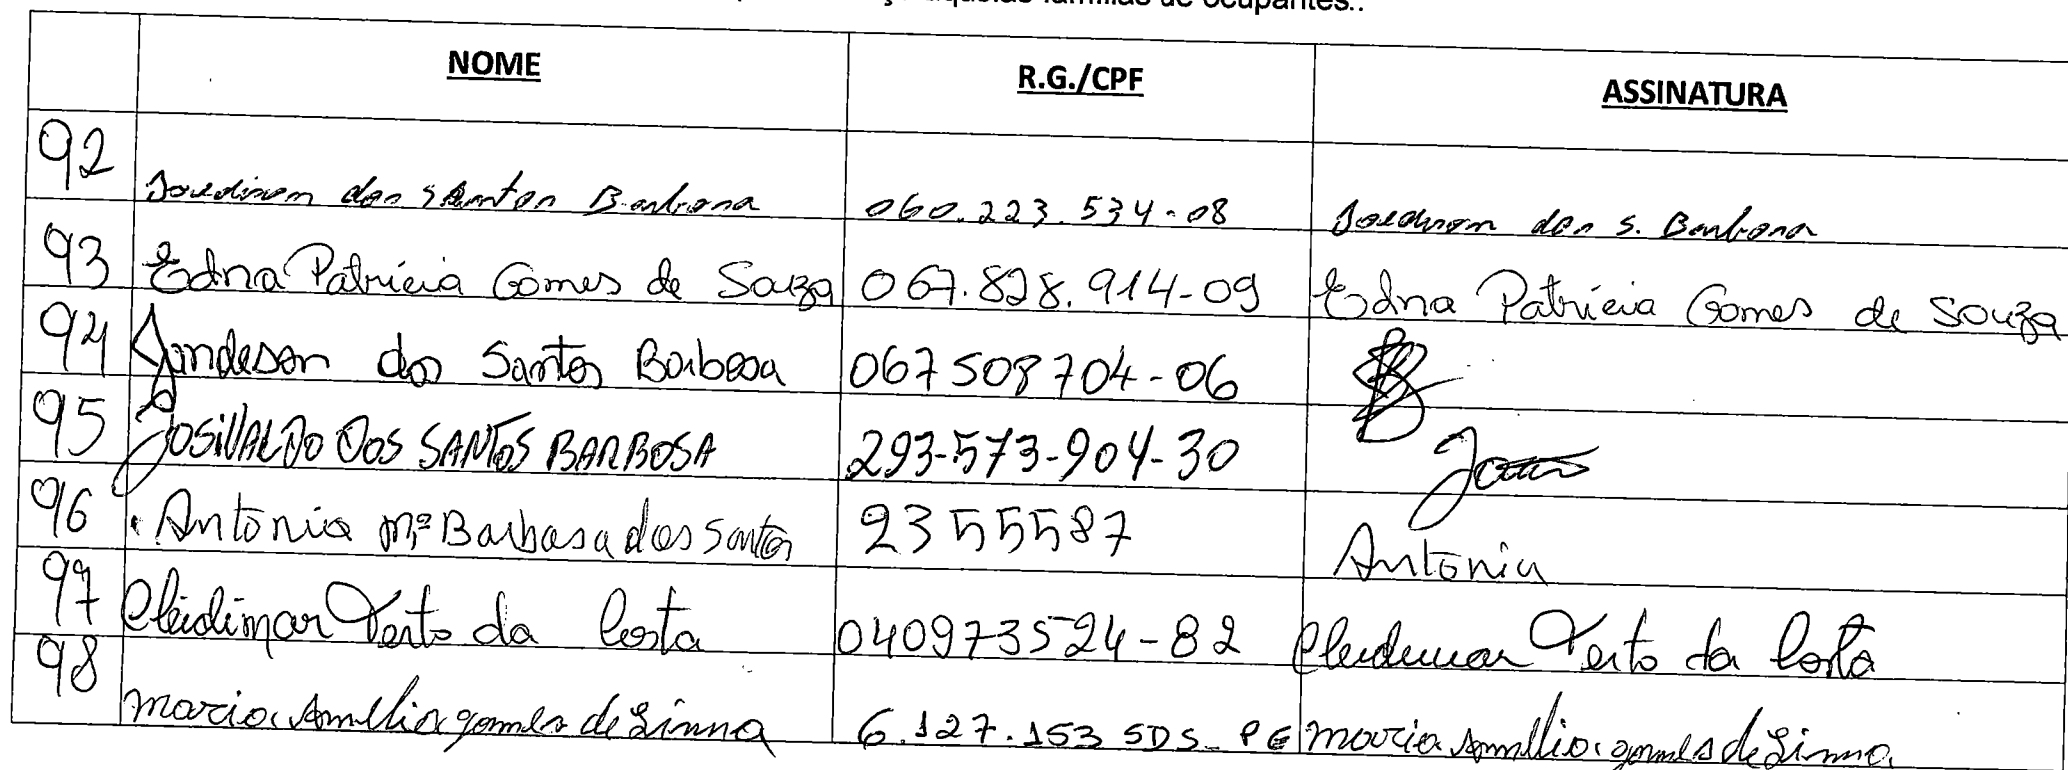 famílias de ocupantes..
NOME R.G./CPF ASSINATURA
92 dos Santos Barbosa 060.223.534-08 dos S. Barbosa
93 Edna Patrícia Gomes de Souza 067.828.914-09 Edna Patrícia Gomes de Souza
94 Jandeson dos Santos Barbosa 067508704-06
95 JOSIVALDO DOS SANTOS BARBOSA 293-573-904-30
96 Antonia Mª Barbosa dos Santos 2355587 Antonia
97 Cleidimar Terto da Costa 040973524-82 Cleidimar Terto da Costa
98 maria Amellia gomes de Limna 6.127.153 SDS-PE maria Amellia gomes de Limna